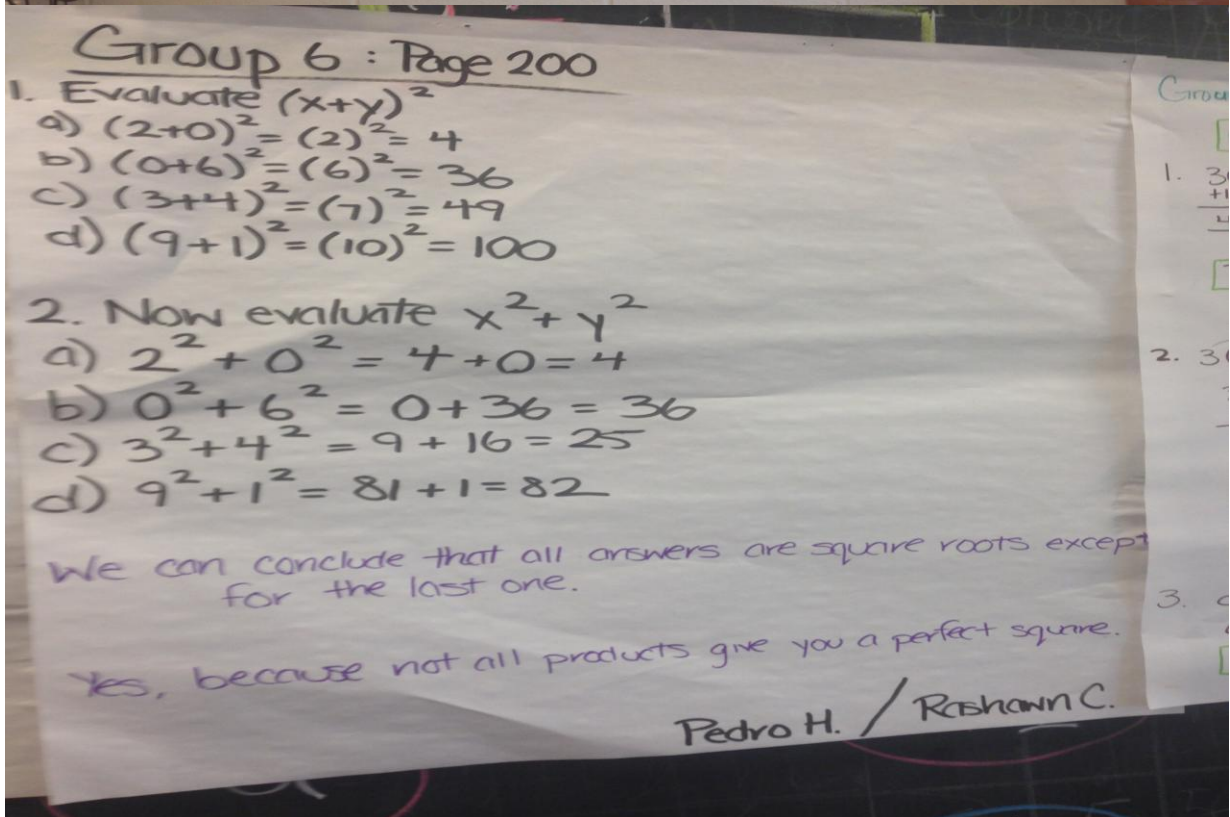 Group 6 : Page 200
1. Evaluate (x+y)²
a) (2+0)² = (2)² = 4
b) (0+6)² = (6)² = 36
c) (3+4)² = (7)² = 49
d) (9+1)² = (10)² = 100
2. Now evaluate x² + y²
a) 2² + 0² = 4 + 0 = 4
b) 0² + 6² = 0 + 36 = 36
c) 3² + 4² = 9 + 16 = 25
d) 9² + 1² = 81 + 1 = 82
We can conclude that all answers are square roots except
for the last one.
Yes, because not all products give you a perfect square.
Pedro H. / Rashawn C.
1.
2.
3.